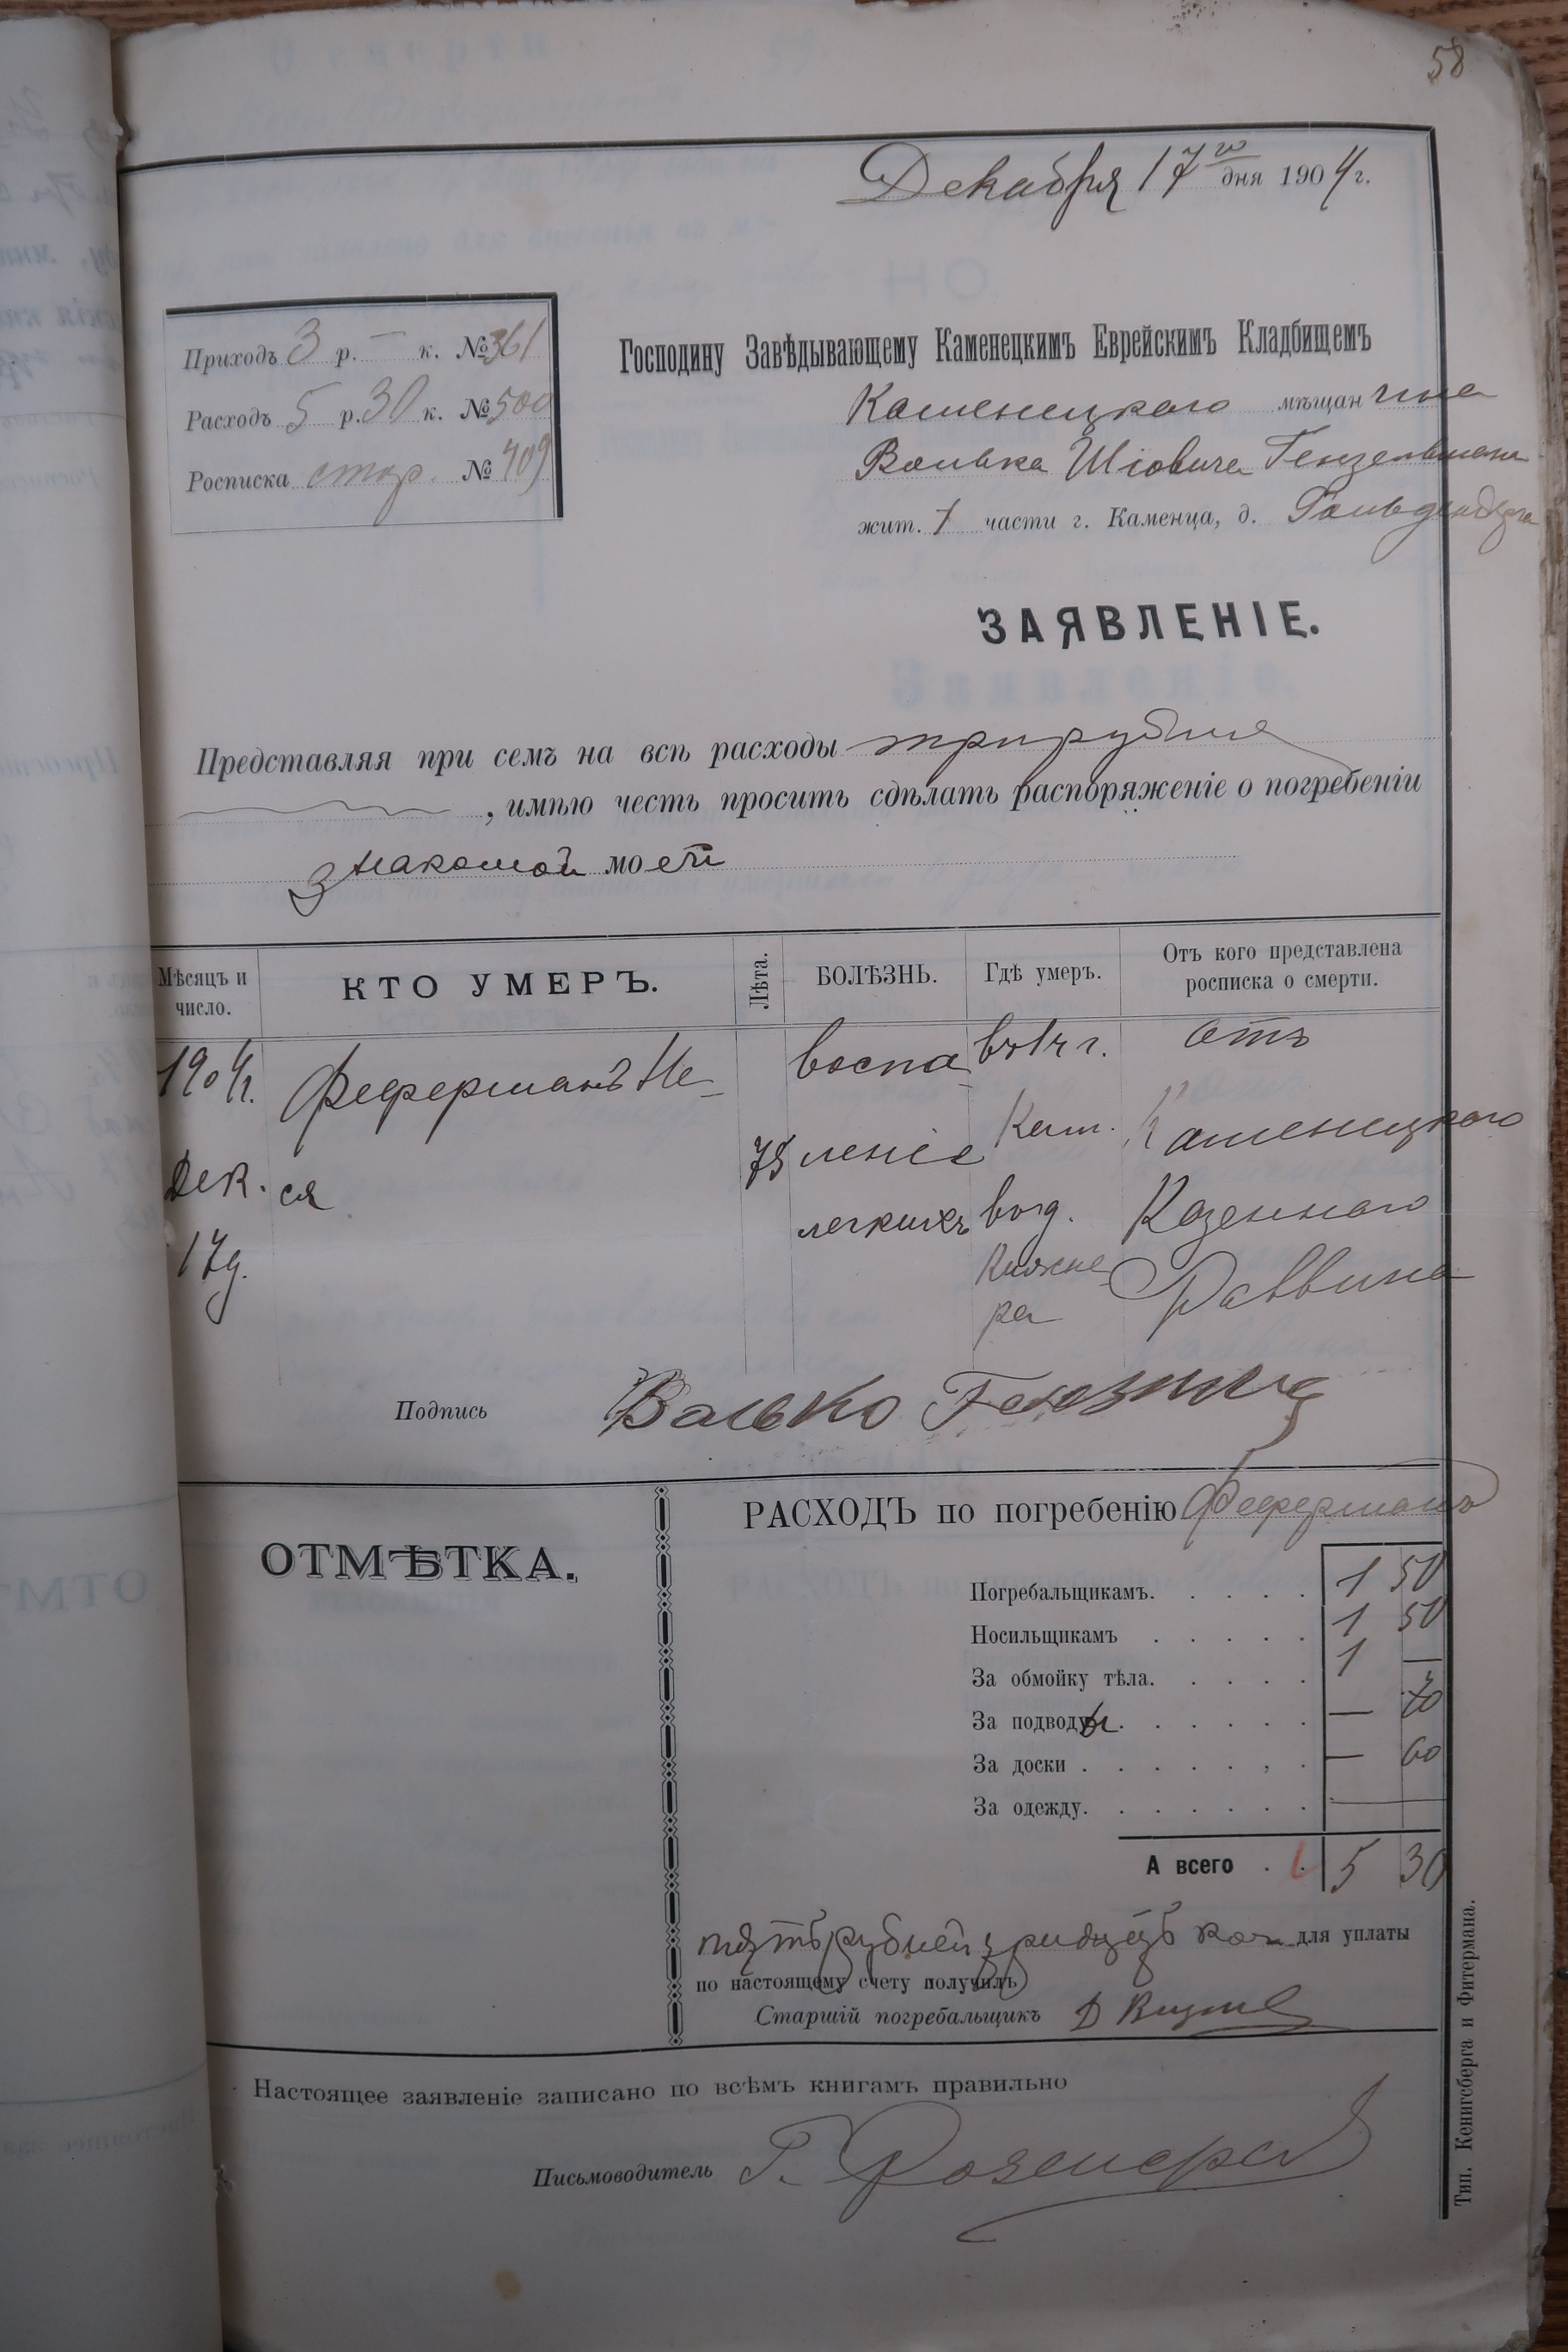 58
Декабря 17го дня 1904 г.
Приходъ 3 р. — к. № 361
Расходъ 5 р. 30 к. № 500
Росписка стор. № 409
Господину Завѣдывающему Каменецкимъ Еврейскимъ Кладбищемъ
Каменецкого мѣщанина
Валька Шіовича
жит. 1 части г. Каменца, д. Гольденберга
ЗАЯВЛЕНІЕ.
Представляя при семъ на всѣ расходы три рубля
, имѣю честь просить сдѣлать распоряженіе о погребеніи
знакомой моей
Мѣсяцъ и число.
КТО УМЕРЪ.
Лѣта.
БОЛѢЗНЬ.
Гдѣ умеръ.
Отъ кого представлена росписка о смерти.
1904 г. Дек. 17 д.
Феферманъ Не-
ся
75
воспа
леніе
легкихъ
въ 1 ч г.
Кам.
в д.
отъ
Каменецкого
Казеннаго
Раввина
Подпись Валько
ОТМѢТКА.
РАСХОДЪ по погребенію Феферманъ
Погребальщикамъ. 1 50
Носильщикамъ 1 50
За обмойку тѣла. 1 —
За подводы — 70
За доски — 60
За одежду. —
А всего 5 30
пять рублей тридцать коп для уплаты
по настоящему счету получилъ
Старшій погребальщикъ Д
Настоящее заявленіе записано по всѣмъ книгамъ правильно
Письмоводитель
Тип. Кенигсберга и Фитермана.